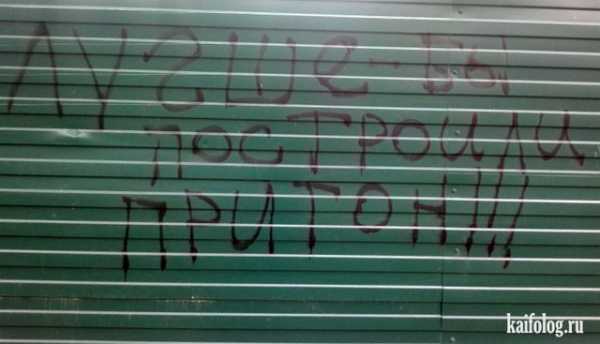 ЛУЧШЕ-БЫ
ПОСТРОИЛИ
ПРИТОН!!!
kaifolog.ru